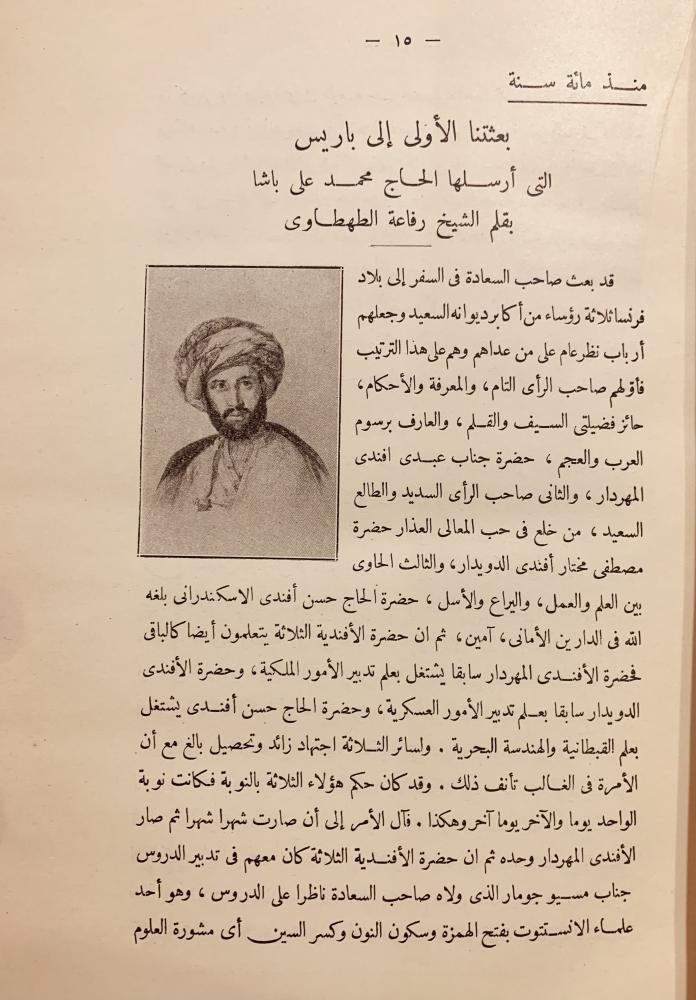 — ١٥ —
منذ مائة سنة
بعثتنا الأولى إلى باريس
التى أرسلها الحاج محمد على باشا
بقلم الشيخ رفاعة الطهطاوى
قد بعث صاحب السعادة فى السفر إلى بلاد
فرنسا ثلاثة رؤساء من أكابر ديوانه السعيد وجعلهم
أرباب نظر عام على من عداهم وهم على هذا الترتيب
فأولهم صاحب الرأى التام، والمعرفة والأحكام،
حائز فضيلتى السيف والقلم، والعارف برسوم
العرب والعجم، حضرة جناب عبدى افندى
المهردار، والثانى صاحب الرأى السديد والطالع
السعيد، من خلع فى حب المعالى العذار حضرة
مصطفى مختار أفندى الدويدار، والثالث الحاوى
بين العلم والعمل، واليراع والأسل، حضرة الحاج حسن أفندى الاسكندرانى بلغه
الله فى الدارين الأمانى، آمين، ثم ان حضرة الأفندية الثلاثة يتعلمون أيضا كالباقى
فحضرة الأفندى المهردار سابقا يشتغل بعلم تدبير الأمور الملكية، وحضرة الأفندى
الدويدار سابقا بعلم تدبير الأمور العسكرية، وحضرة الحاج حسن أفندى يشتغل
بعلم القبطانية والهندسة البحرية . ولسائر الثلاثة اجتهاد زائد وتحصيل بالغ مع أن
الأمرة فى الغالب تأنف ذلك . وقد كان حكم هؤلاء الثلاثة بالنوبة فكانت نوبة
الواحد يوما والآخر يوما آخر وهكذا . فآل الأمر إلى أن صارت شهرا شهرا ثم صار
الأفندى المهردار وحده ثم ان حضرة الأفندية الثلاثة كان معهم فى تدبير الدروس
جناب مسيو جومار الذى ولاه صاحب السعادة ناظرا على الدروس، وهو أحد
علماء الانستتوت بفتح الهمزة وسكون النون وكسر السين أى مشورة العلوم